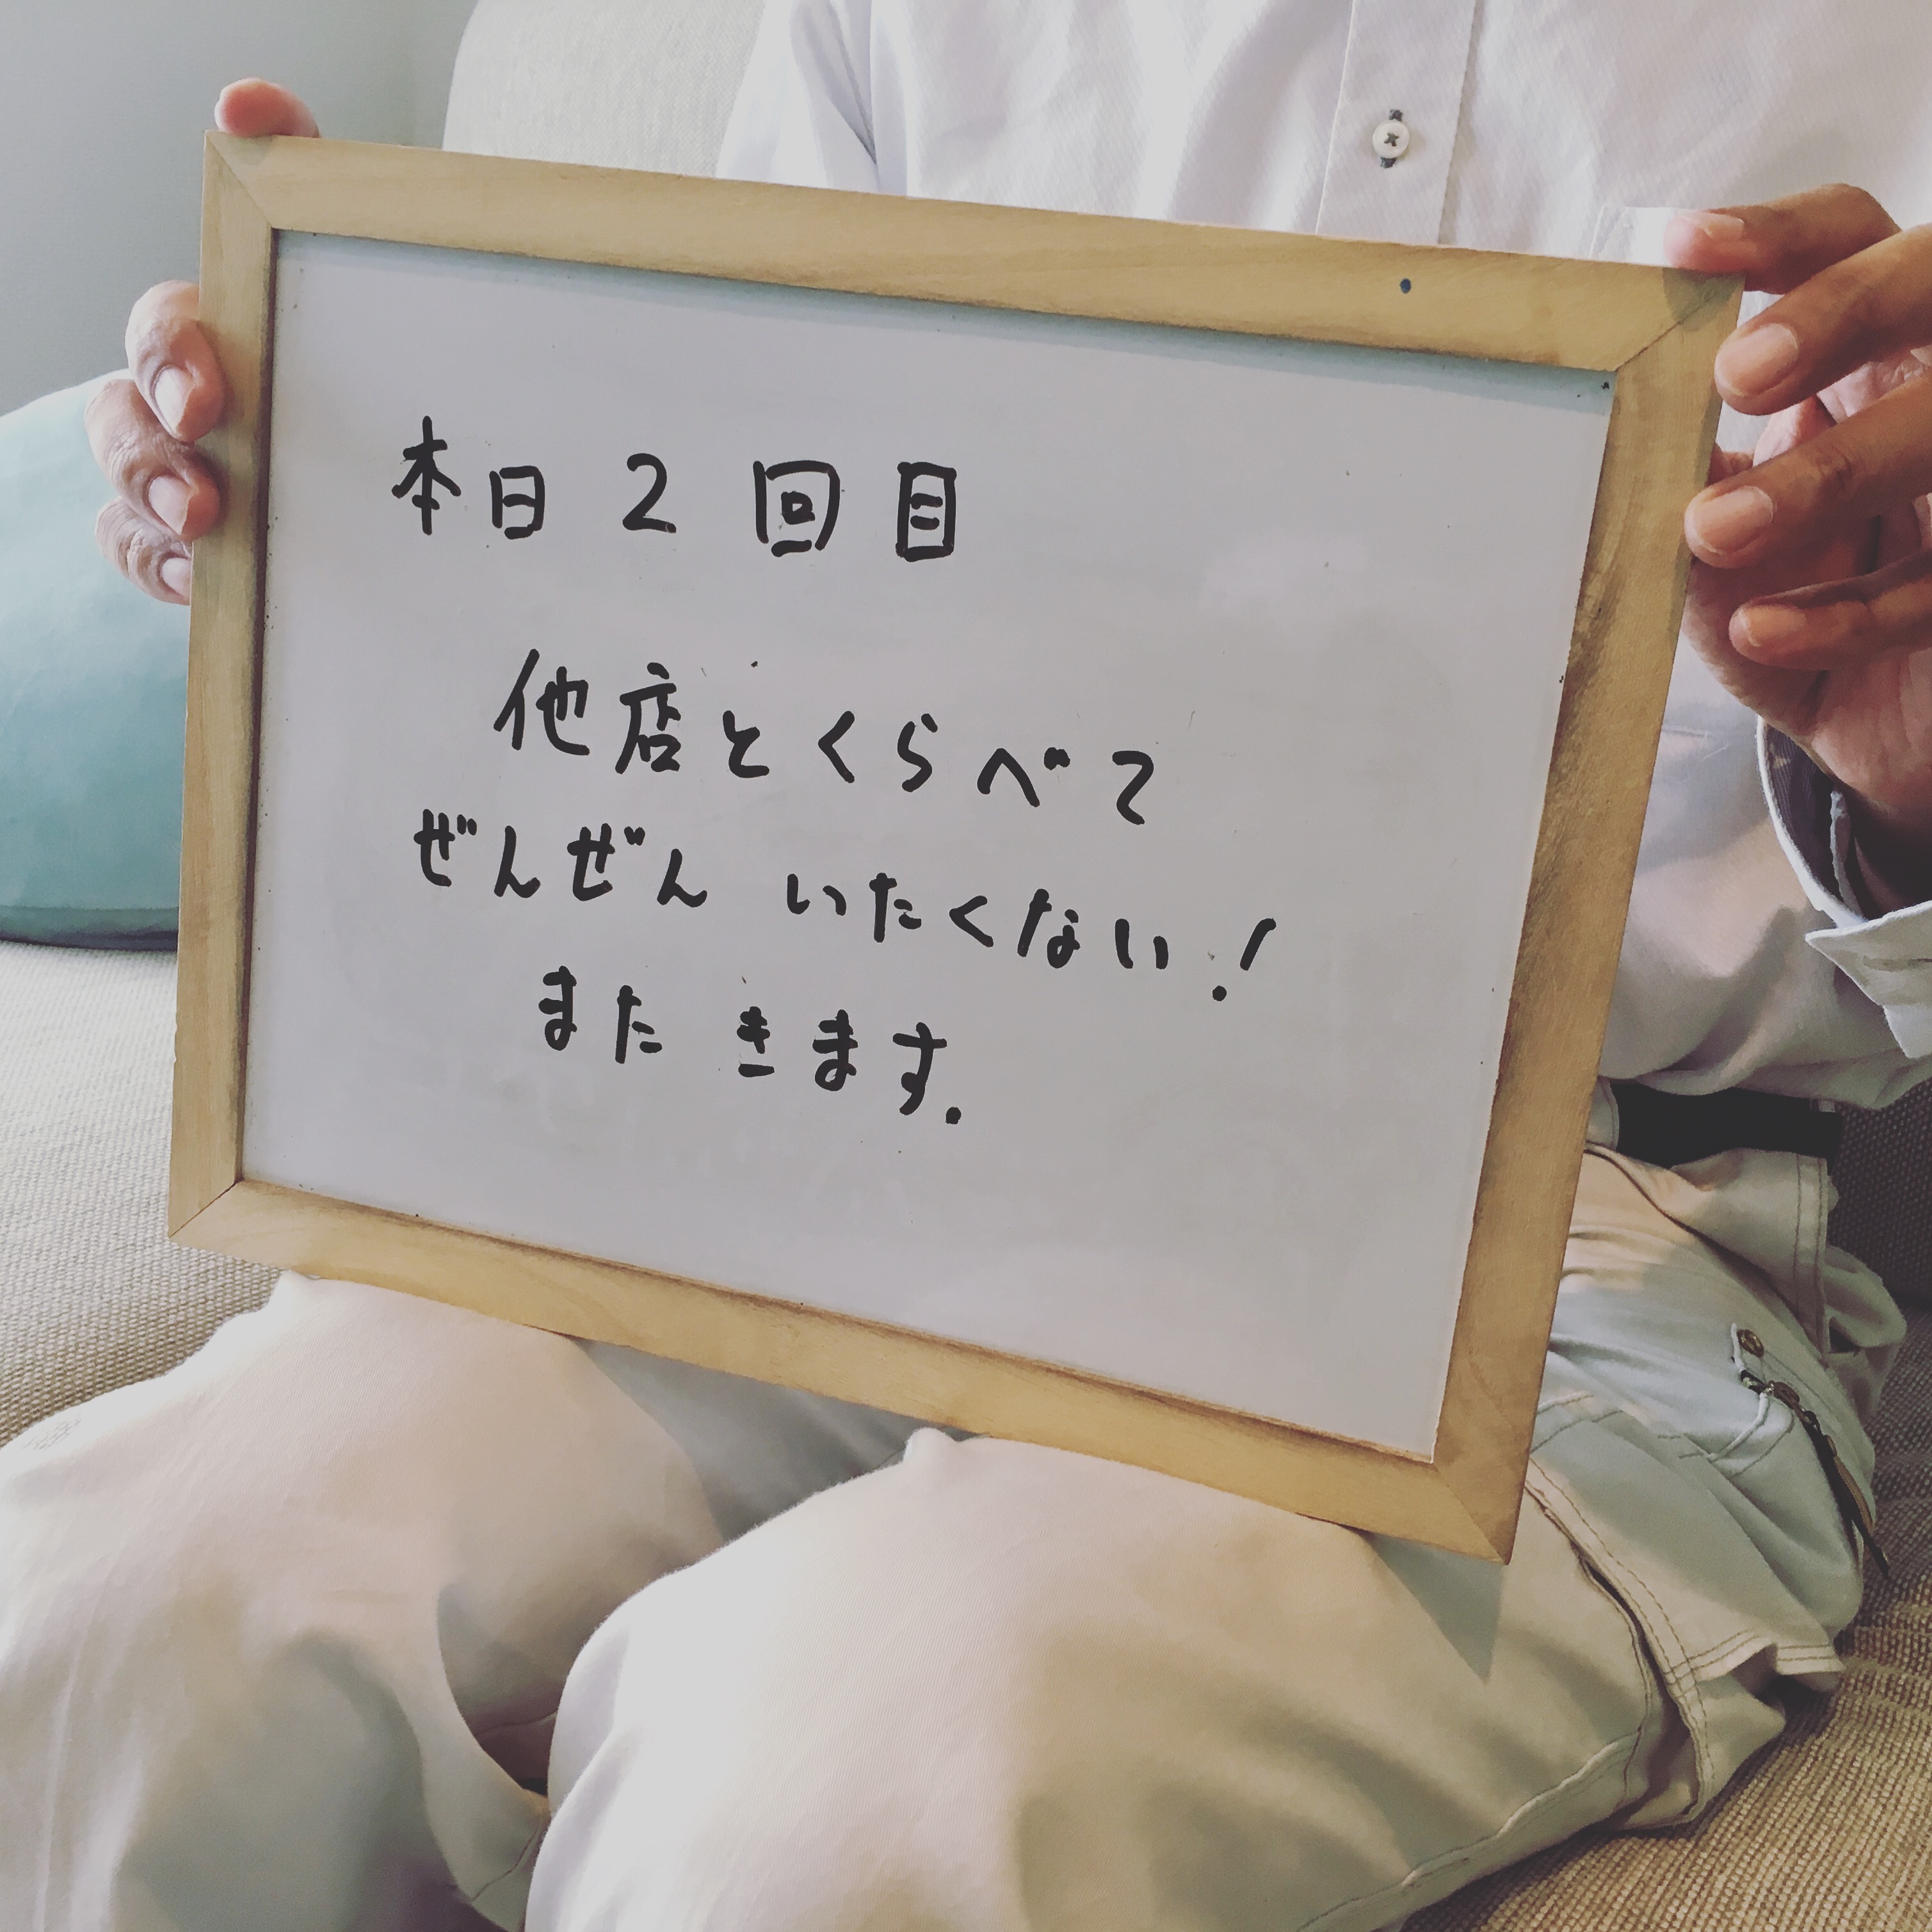 本日 2 回目
他店とくらべて
ぜんぜん いたくない!
また きます.